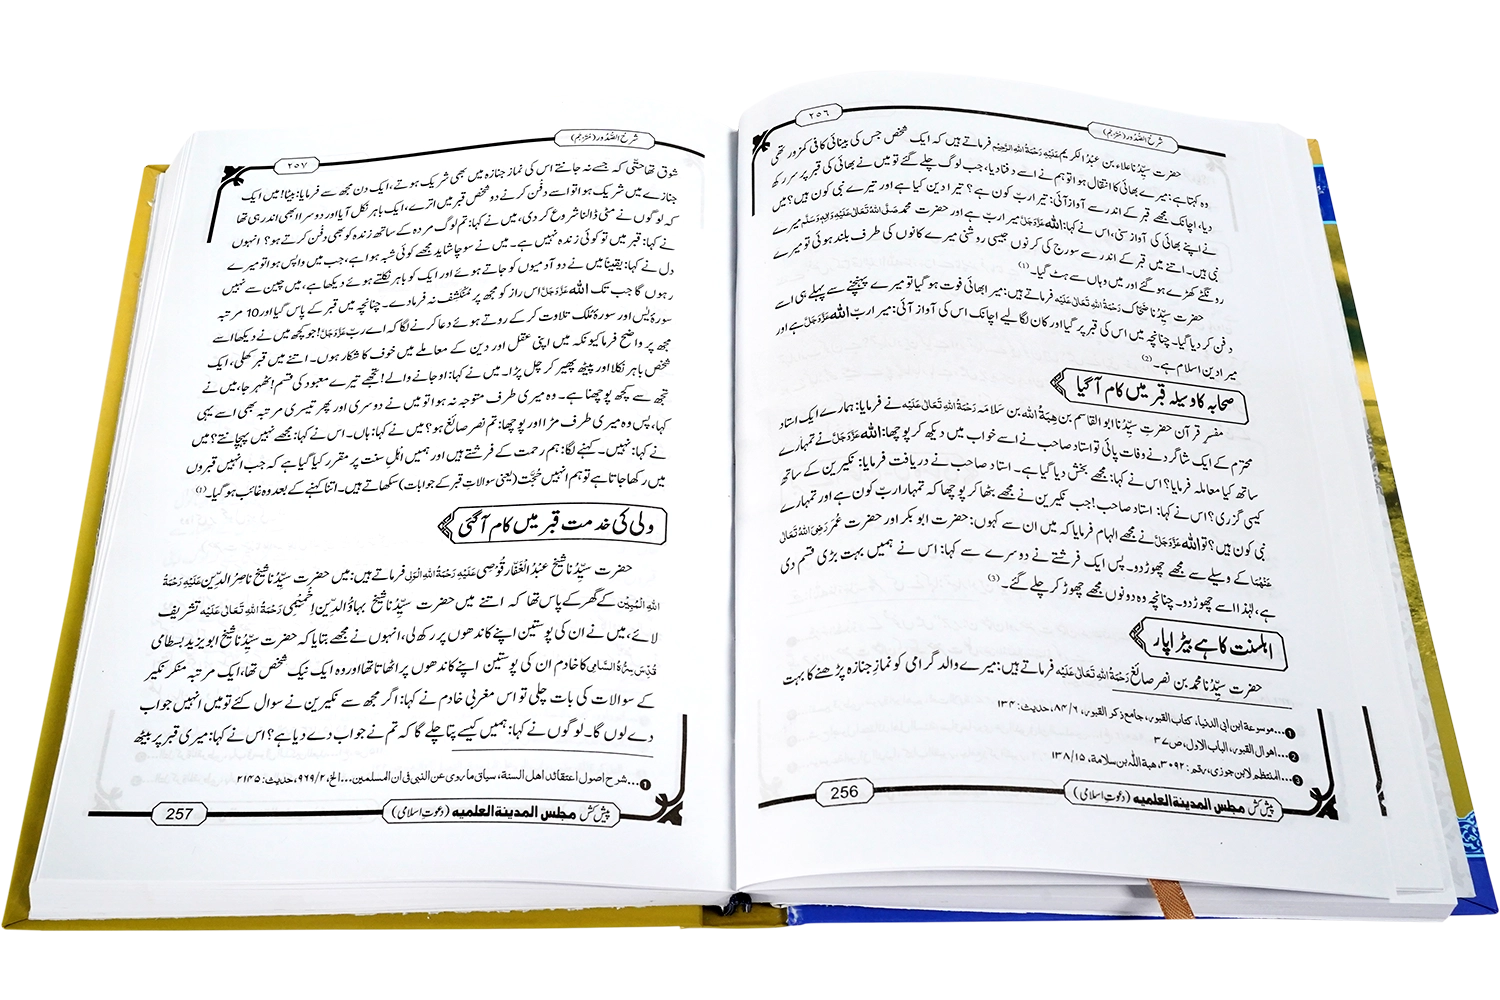 ۲۵٦
شرحُ الصُّدُور (مُترجَم)
حضرت سیِّدُنا علاء بن عبدُ الکریم عَلَیْہِ رَحْمَۃُ اللہِ الرَّحِیْم فرماتے ہیں کہ ایک شخص جس کی بینائی کافی کمزور تھی
وہ کہتا ہے: میرے بھائی کا انتقال ہوا تو ہم نے اسے دفنا دیا، جب لوگ چلے گئے تو میں نے بھائی کی قبر پر سر رکھ
دیا، اچانک مجھے قبر کے اندر سے آواز آئی: تیرا ربّ کون ہے؟ تیرا دین کیا ہے اور تیرے نبی کون ہیں؟ میں
نے اپنے بھائی کی آواز سنی، اس نے کہا: اللہ عَزَّوَجَلَّ میرا ربّ ہے اور حضرت محمد صَلَّی اللہُ تَعَالٰی عَلَیْہِ وَاٰلِہٖ وَسَلَّم میرے
نبی ہیں۔ اتنے میں قبر کے اندر سے سورج کی کرنوں جیسی روشنی میرے کانوں کی طرف بلند ہوئی تو میرے
رونگٹے کھڑے ہو گئے اور میں وہاں سے ہٹ گیا۔(1)
حضرت سیِّدُنا ضحّاک رَحْمَۃُ اللہِ تَعَالٰی عَلَیْہ فرماتے ہیں: میرا بھائی فوت ہو گیا تو میرے پہنچنے سے پہلے ہی اسے
دفن کر دیا گیا۔ چنانچہ میں اس کی قبر پر گیا اور کان لگا لیے اچانک اس کی آواز آئی: میرا ربّ اللہ عَزَّوَجَلَّ ہے اور
میرا دین اسلام ہے۔(2)
صحابہ کا وسیلہ قبر میں کام آگیا
مفسرِ قرآن حضرتِ سیِّدُنا ابوالقاسم بن ھِبَۃُ اللہ بن سَلَامَہ رَحْمَۃُ اللہِ تَعَالٰی عَلَیْہ نے فرمایا: ہمارے ایک استاد
محترم کے ایک شاگرد نے وفات پائی تو استاد صاحب نے اسے خواب میں دیکھ کر پوچھا: اللہ عَزَّوَجَلَّ نے تمہارے
ساتھ کیا معاملہ فرمایا؟ اس نے کہا: مجھے بخش دیا گیا ہے۔ استاد صاحب نے دریافت فرمایا: نکیرین کے ساتھ
کیسی گزری؟ اس نے کہا: استاد صاحب! جب نکیرین نے مجھے بٹھا کر پوچھا کہ تمہارا ربّ کون ہے اور تمہارے
نبی کون ہیں؟ تو اللہ عَزَّوَجَلَّ نے مجھے الہام فرمایا کہ میں ان سے کہوں: حضرت ابو بکر اور حضرت عُمَر رَضِیَ اللہُ تَعَالٰی
عَنْہُمَا کے وسیلے سے مجھے چھوڑ دو۔ پس ایک فرشتے نے دوسرے سے کہا: اس نے ہمیں بہت بڑی قسم دی
ہے، لہٰذا اسے چھوڑ دو۔ چنانچہ وہ دونوں مجھے چھوڑ کر چلے گئے۔(3)
اہلسنت کا ہے بیڑا پار
حضرت سیِّدُنا محمد بن نصر صائغ رَحْمَۃُ اللہِ تَعَالٰی عَلَیْہ فرماتے ہیں: میرے والد گرامی کو نمازِ جنازہ پڑھنے کا بہت
❶...موسوعة ابن ابی الدنیا، کتاب القبور، جامع ذکر القبور، ۶/ ۸۴، حدیث: ۱۳۴
❷...اهوال القبور، الباب الاول، ص۳۷
❸...المنتظم لابن جوزی، رقم: ۳۰۹۲، هبة اللّٰہ بن سلامة، ۱۵/ ۱۳۸
پیش کش مجلس المدینۃ العلمیہ (دعوتِ اسلامی)
256
شرحُ الصُّدُور (مُترجَم)
۲۵۷
شوق تھا حتّٰی کہ جسے نہ جانتے اس کی نمازِ جنازہ میں بھی شریک ہوتے، ایک دن مجھ سے فرمایا: بیٹا! میں ایک
جنازے میں شریک ہوا تو اسے دفن کرنے دو شخص قبر میں اترے، ایک باہر نکل آیا اور دوسرا ابھی اندر ہی تھا
کہ لوگوں نے مٹی ڈالنا شروع کر دی، میں نے کہا: تم لوگ مردہ کے ساتھ زندہ کو بھی دفن کرتے ہو؟ انہوں
نے کہا: قبر میں تو کوئی زندہ نہیں ہے۔ میں نے سوچا شاید مجھے کوئی شبہ ہوا ہے، جب میں واپس ہوا تو میرے
دل نے کہا: یقیناً میں نے دو آدمیوں کو جاتے ہوئے اور ایک کو باہر نکلتے ہوئے دیکھا ہے، میں چین سے نہیں
رہوں گا جب تک اللہ عَزَّوَجَلَّ اس راز کو مجھ پر مُنْکَشِف نہ فرما دے۔ چنانچہ میں قبر کے پاس گیا اور 10 مرتبہ
سورۂ یٰس اور سورۂ مُلک تلاوت کر کے روتے ہوئے دعا کرنے لگا کہ اے ربّ عَزَّوَجَلَّ! جو کچھ میں نے دیکھا اسے
مجھ پر واضح فرما کیونکہ میں اپنی عقل اور دین کے معاملے میں خوف کا شکار ہوں۔ اتنے میں قبر کھلی، ایک
شخص باہر نکلا اور پیٹھ پھیر کر چل پڑا۔ میں نے کہا: او جانے والے! تجھے تیرے معبود کی قسم! ٹھہر جا، میں نے
تجھ سے کچھ پوچھنا ہے۔ وہ میری طرف متوجہ نہ ہوا تو میں نے دوسری اور پھر تیسری مرتبہ بھی اسے یہی
کہا، پس وہ میری طرف مڑا اور پوچھا: تم نصر صائغ ہو؟ میں نے کہا: ہاں۔ اس نے کہا: مجھے نہیں پہچانتے؟ میں
نے کہا: نہیں۔ کہنے لگا: ہم رحمت کے فرشتے ہیں اور ہمیں اہْلِ سنت پر مقرر کیا گیا ہے کہ جب انہیں قبروں
میں رکھا جاتا ہے تو ہم انہیں حُجَّت (یعنی سوالاتِ قبر کے جوابات) سکھاتے ہیں۔ اتنا کہنے کے بعد وہ غائب ہو گیا۔(1)
ولی کی خدمت قبر میں کام آگئی
حضرت سیِّدُنا شیخ عبدُ الْغَفّار قُوْصِی عَلَیْہِ رَحْمَۃُ اللہِ الْوَلِی فرماتے ہیں: میں حضرت سیِّدُنا شیخ ناصرُ الدِّین عَلَیْہِ رَحْمَۃُ
اللہِ الْمُبِیْن کے گھر کے پاس تھا کہ اتنے میں حضرت سیِّدُنا شیخ بہاؤ الدِّین اِخْمِیْمِی رَحْمَۃُ اللہِ تَعَالٰی عَلَیْہ تشریف
لائے، میں نے ان کی پوستین اپنے کاندھوں پر رکھ لی، انہوں نے مجھے بتایا کہ حضرت سیِّدُنا شیخ ابو یزید بسطامی
قُدِّسَ سِرُّہُ السَّامِی کا خادم ان کی پوستین اپنے کاندھوں پر اٹھاتا تھا اور وہ ایک نیک شخص تھا، ایک مرتبہ منکر نکیر
کے سوالات کی بات چلی تو اس مغربی خادم نے کہا: اگر مجھ سے نکیرین نے سوال کئے تو میں انہیں جواب
دے لوں گا۔ لوگوں نے کہا: ہمیں کیسے پتا چلے گا کہ تم نے جواب دے دیا ہے؟ اس نے کہا: میری قبر پر بیٹھ
❶...شرح اصول اعتقاد اهل السنة، سیاق ما روی عن النبی فی ان المسلمین...الخ، ۲/ ۹۶۹، حدیث: ۲۱۴۵
پیش کش مجلس المدینۃ العلمیہ (دعوتِ اسلامی)
257